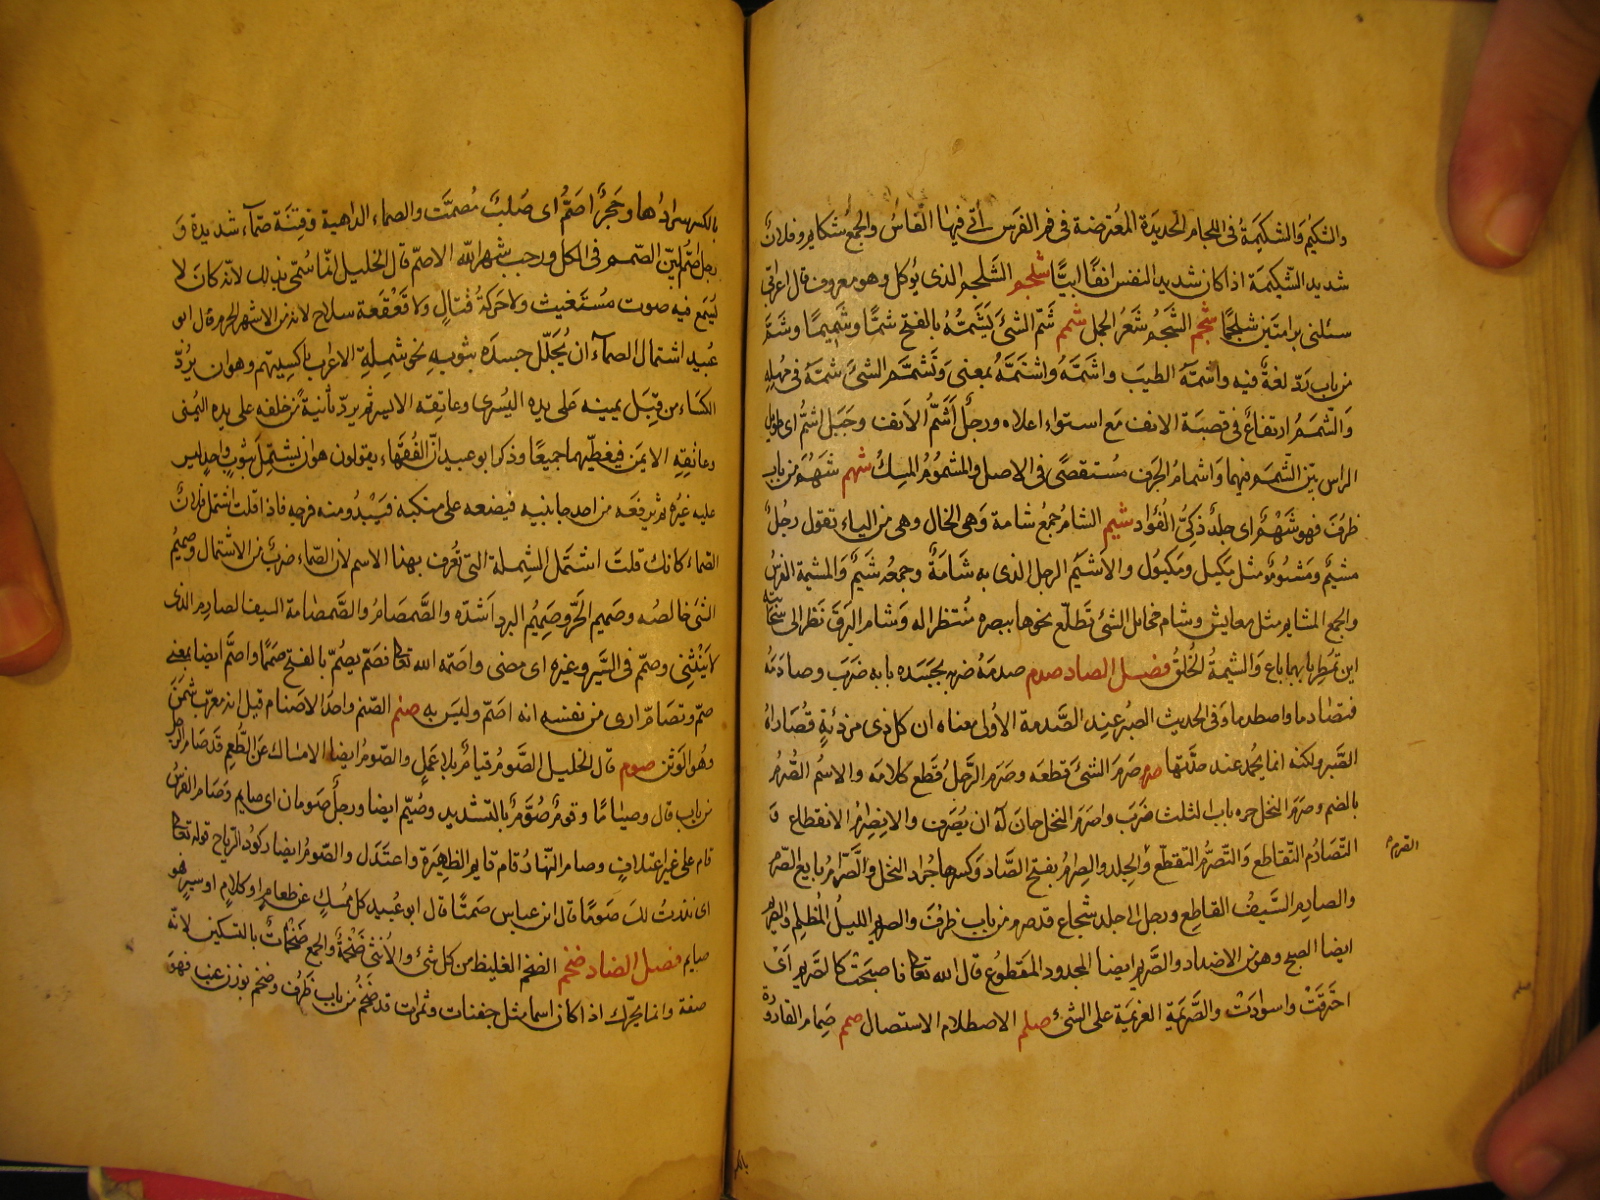 والشكيم والشكيمة في اللجام الحديدة المعترضة في فم الفرس التي فيها الفأس والجمع شكايم وفلان
شديد الشكيمة اذا كان شديد النفس انفا ابيا شلجم الشلجم الذي يؤكل وهو معروف قال اعرابي
سئلني برامتين شلجما شحم الشحم شعر الجمل شمم شم الشئ يشمه بالفتح شما وشميما وشم
من باب رد لغة فيه واشمه الطيب واشمه واشتمه بمعنى وتشمم الشئ شمه في مهلة
والشمم ارتفاع في قصبة الانف مع استواء اعلاه ورجل اشم الانف وجبل اشم اى طويل
الراس بين الشمم فيهما واشمام الحرف مستقصى في الاصل والمشموم المسك شهم شهم من باب
ظرف فهو شهم اى جلد ذكي الفؤاد شيم الشام جمع شامة وهي الخال وهي من الياء تقول رجل
مشيم ومشيوم مثل مكيل ومكيول والاشيم الرجل الذى به شامة وجمعه شيم والمشيمة الغرس
والجمع المشايم مثل معايش وشام مخايل الشئ تطلع نحوها ببصره منتظرا له وشام البرق نظر الى سحابته
اين تمطر بابهما باع والشيمة الخلق فصل الصاد صدم صدمه ضربه بجسده بابه ضرب وصادمه
فتصادما واصطدما وفى الحديث الصبر عند الصدمة الاولى معناه ان كل ذى مرزئة قصاراه
الصبر ولكنه انما يحمد عند حدتها صرم صرم الشئ قطعه وصرم الرجل قطع كلامه والاسم الصرم
بالضم وصرم النخل جزه باب الثلث ضرب واصرم النخل حان له ان يصرم والانصرام الانقطاع و
التصارم التقاطع والتصرم التقطع والجلد والصرام بفتح الصاد وكسرها جداد النخل والصرم بايع الصرم
والصارم السيف القاطع ورجل اى جلد شجاع قد صرم من باب ظرف والصريم الليل المظلم والصريم
ايضا الصبح وهو من الاضداد والصريم ايضا المجدود المقطوع قال الله تعالى فاصبحت كالصريم اى
احترقت واسودت والصريمة العزيمة على الشئ صلم الاصطلام الاستيصال صمم صمام القارورة
القرم
بالكسر سدادها وحجر اصم اى صلب مصمت والصماء الداهية وفتنة صماء شديدة و
رجل اصم بين الصمم في الكل ورجب شهر الله الاصم قال الخليل انما سمى بذلك لانه كان لا
يسمع فيه صوت مستغيث ولا حركة قتال ولا قعقعة سلاح لانه من الاشهر الحرم وقال ابو
عبيد اشتمال الصماء ان يجلل جسده بثوبه نحو شملة الاعراب باكسيتهم وهو ان يرد
الكساء من قبل يمينه على يده اليسرى وعاتقه الايسر ثم يرده ثانية من خلفه على يده اليمنى
وعاتقه الايمن فيغطيهما جميعا وذكر ابو عبيد ان الفقهاء يقولون هو ان يشتمل بثوب واحد ليس
عليه غيره ثم يرفعه من احد جانبيه فيضعه على منكبه فيبدو منه فرجه فاذا قلت اشتمل فلان
الصماء كانك قلت اشتمل الشملة التي تعرف بهذا الاسم لان الصماء ضرب من الاشتمال وصميم
الشئ خالصه وصميم الحر وصميم البرد اشده والصمصام والصمصامة السيف الصارم الذى
لا ينثنى وصمم في السير وغيره اى مضى واصمه الله تعالى فصم يصم بالفتح صمما واصم ايضا بمعنى
صم وتصام ارى من نفسه انه اصم وليس به صنم الصنم واحد الاصنام قيل انه معرب شمن
وهو الوثن صوم قال الخليل الصوم قيام بلا عمل والصوم ايضا الامساك عن الطعم قد صام الرجل
من باب قال وصياما وقوم صوم بالتشديد وصيم ايضا ورجل صومان اى صايم وصام الفرس
قام على غير اعتلاف وصام النهار قام قايم الظهيرة واعتدل والصوم ايضا ركود الرياح قوله تعالى
انى نذرت لك صوما قال ابن عباس صمتا قال ابو عبيد كل ممسك عن طعام او كلام او سير فهو
صايم فصل الضاد ضخم الضخم الغليظ من كل شئ والانثى ضخمة والجمع ضخمات بالتسكين لانه
صفة وانما يحرك اذا كان اسما مثل جفنات وثمرات قد ضخم من باب ظرف وضخم بوزن عنب فهو